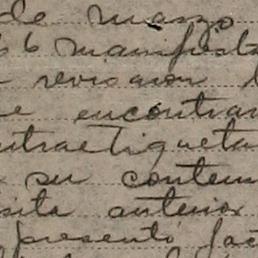 de marzo
6 manifiesta
revision
e encontrar
ntraetiqueta
su conten
sita anterior
presentó fac